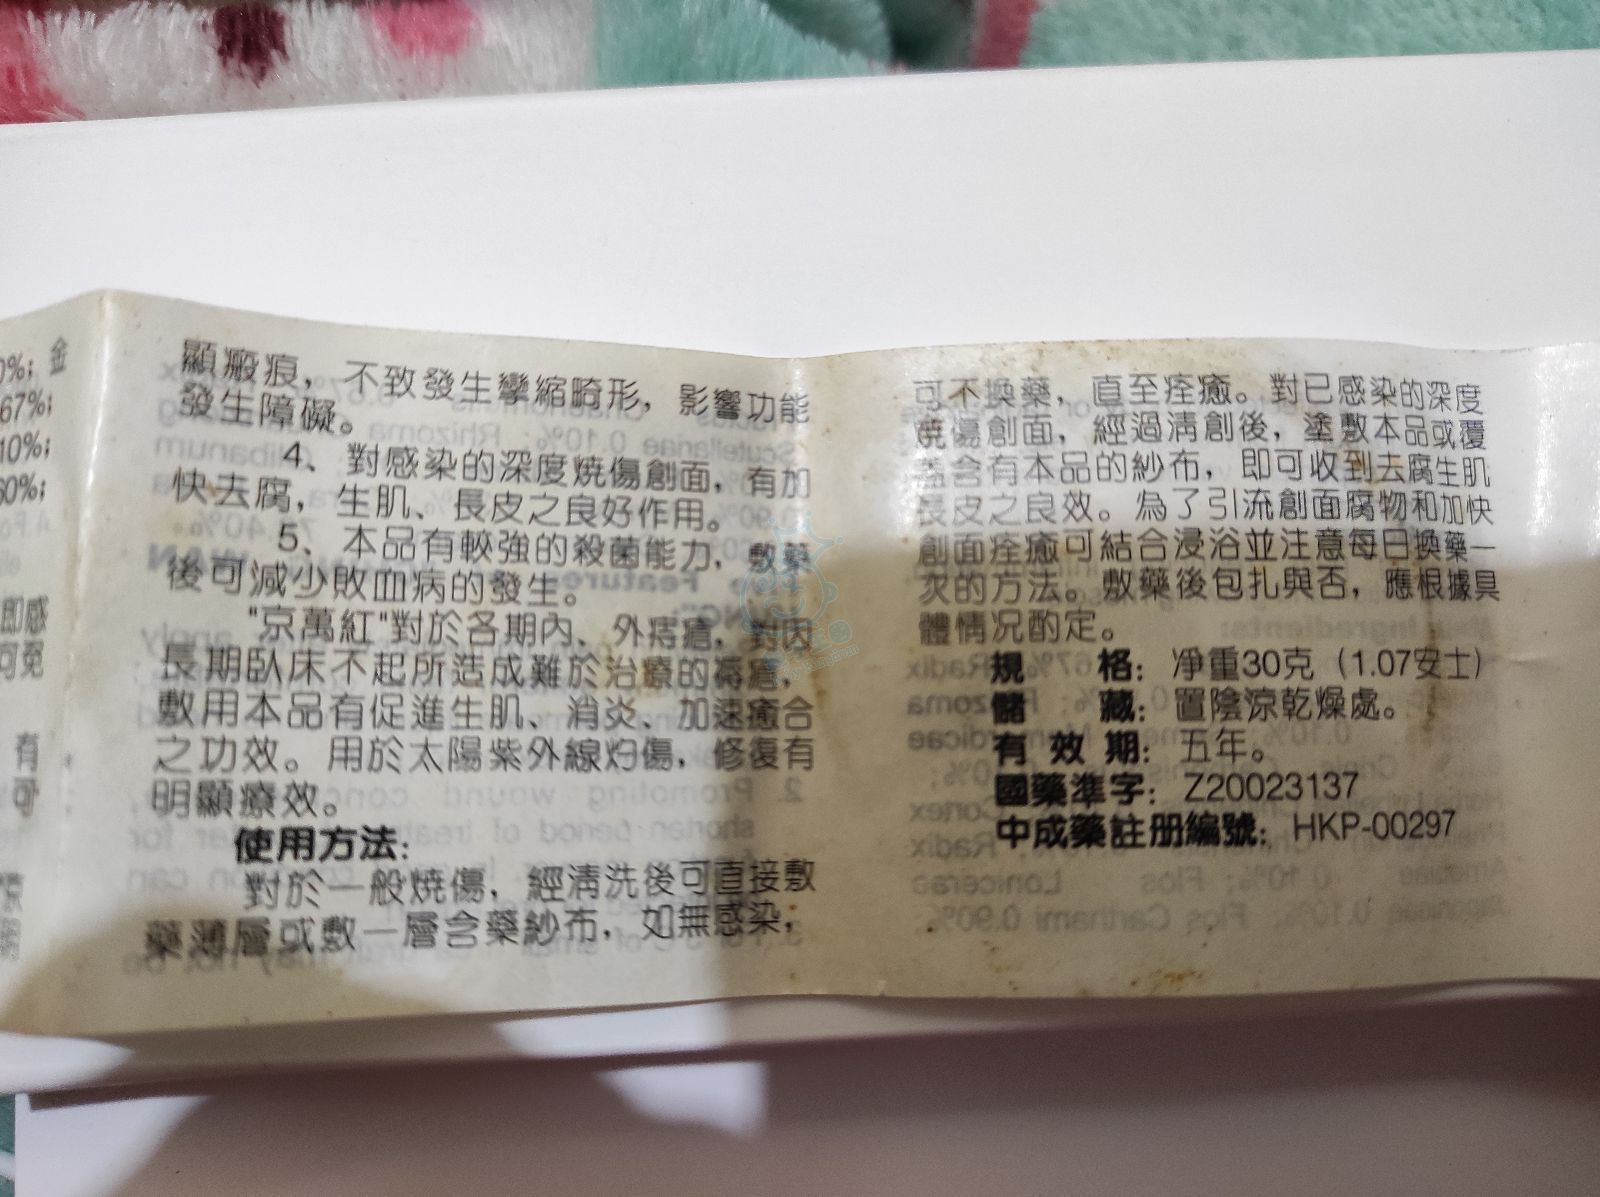 0%; 金
67%;
10%;
60%;
即感
可免
有
可
顯瘢痕，不致發生攣縮畸形，影響功能
發生障礙。
4、對感染的深度燒傷創面，有加
快去腐，生肌、長皮之良好作用。
5、本品有較強的殺菌能力，敷藥
後可減少敗血病的發生。
"京萬紅"對於各期內、外痔瘡，對因
長期臥床不起所造成難於治療的褥瘡，
敷用本品有促進生肌、消炎、加速癒合
之功效。用於太陽紫外線灼傷，修復有
明顯療效。
使用方法：
對於一般燒傷，經清洗後可直接敷
藥薄層或敷一層含藥紗布，如無感染，
可不換藥，直至痊癒。對已感染的深度
燒傷創面，經過清創後，塗敷本品或覆
蓋含有本品的紗布，即可收到去腐生肌
長皮之良效。為了引流創面腐物和加快
創面痊癒可結合浸浴並注意每日換藥一
次的方法。敷藥後包扎與否，應根據具
體情況酌定。
規 格：淨重30克（1.07安士）
儲 藏：置陰涼乾燥處。
有 效 期：五年。
國藥準字：Z20023137
中成藥註册編號：HKP-00297